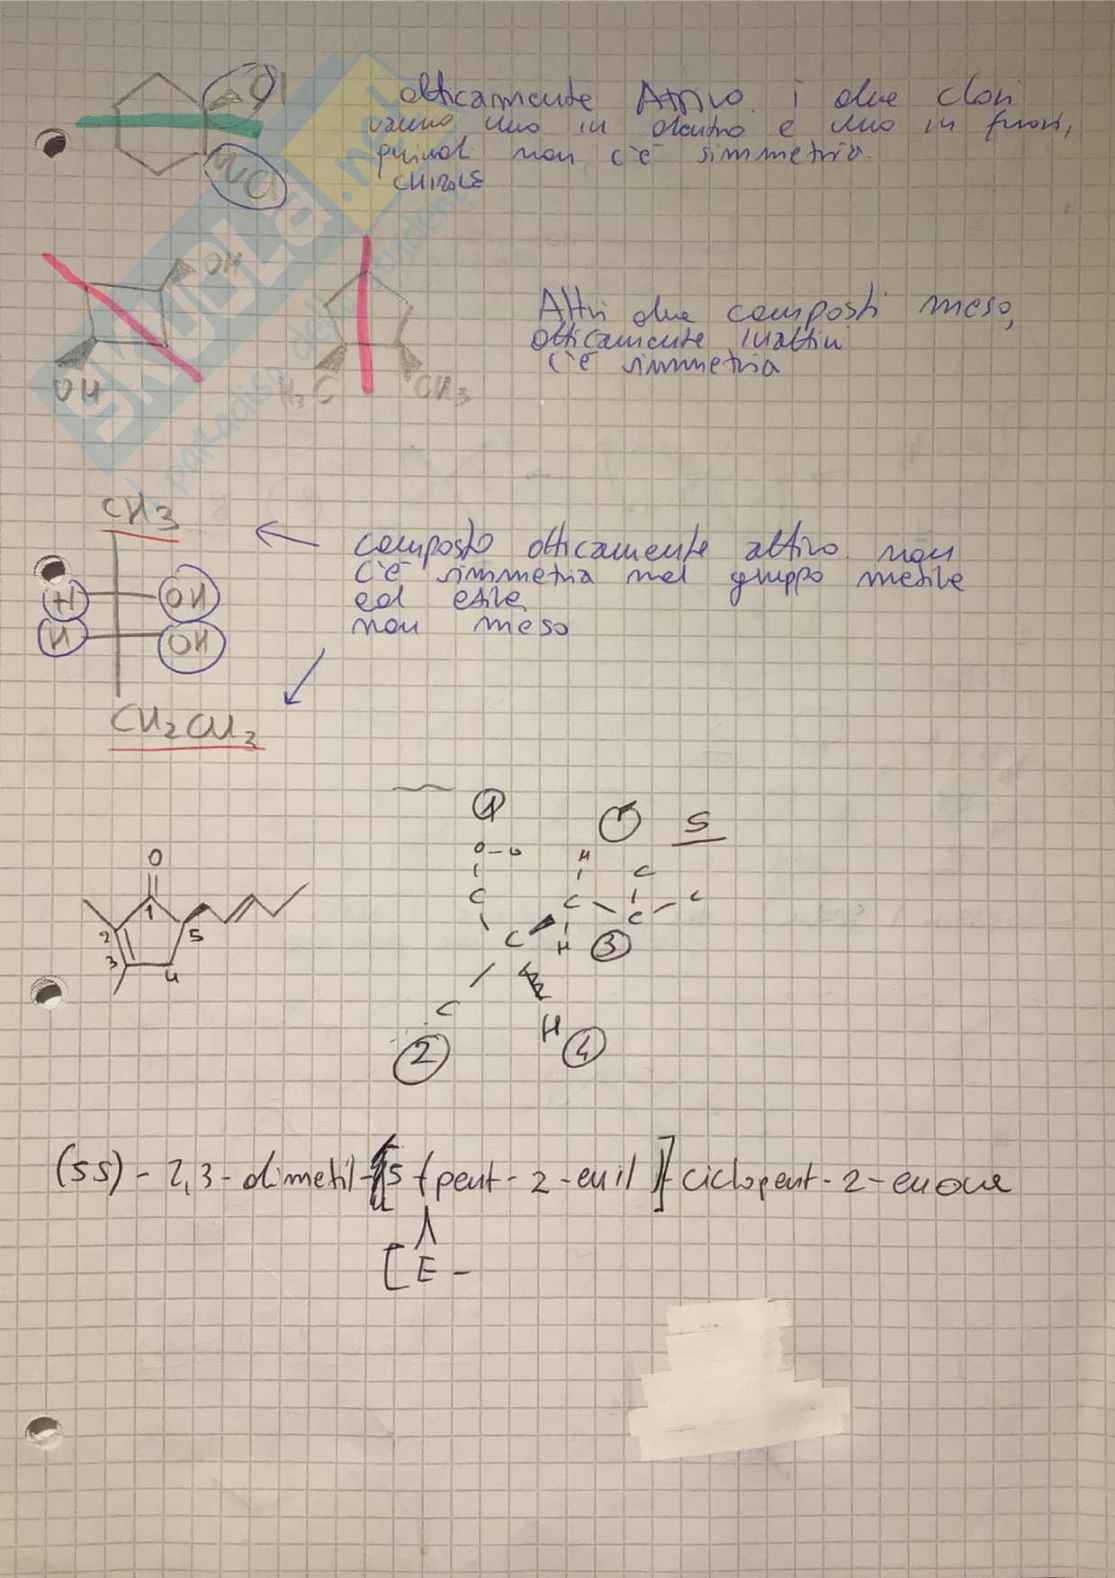 Cl
otticamente Attivo. i due clori
vanno uno in dentro e uno in fuori,
quindi non c'è simmetria.
CHIRALE
Cl
OH
OH
H₃C
CH₃
Altri due composti meso,
otticamente inattivi
c'è simmetria
SKUOLA.net
CH₃
H OH
H OH
CH₂CH₃
composto otticamente attivo. non
c'è simmetria nel gruppo metile
ed etile
non meso
O
1
2
3
4
5
1
S
O-O
H
C
C
C
C
C
C
H
3
C
H
2
4
(5S) - 2,3 - dimetil - [5 - (pent - 2 - enil)] - ciclopent - 2 - enone
[E -